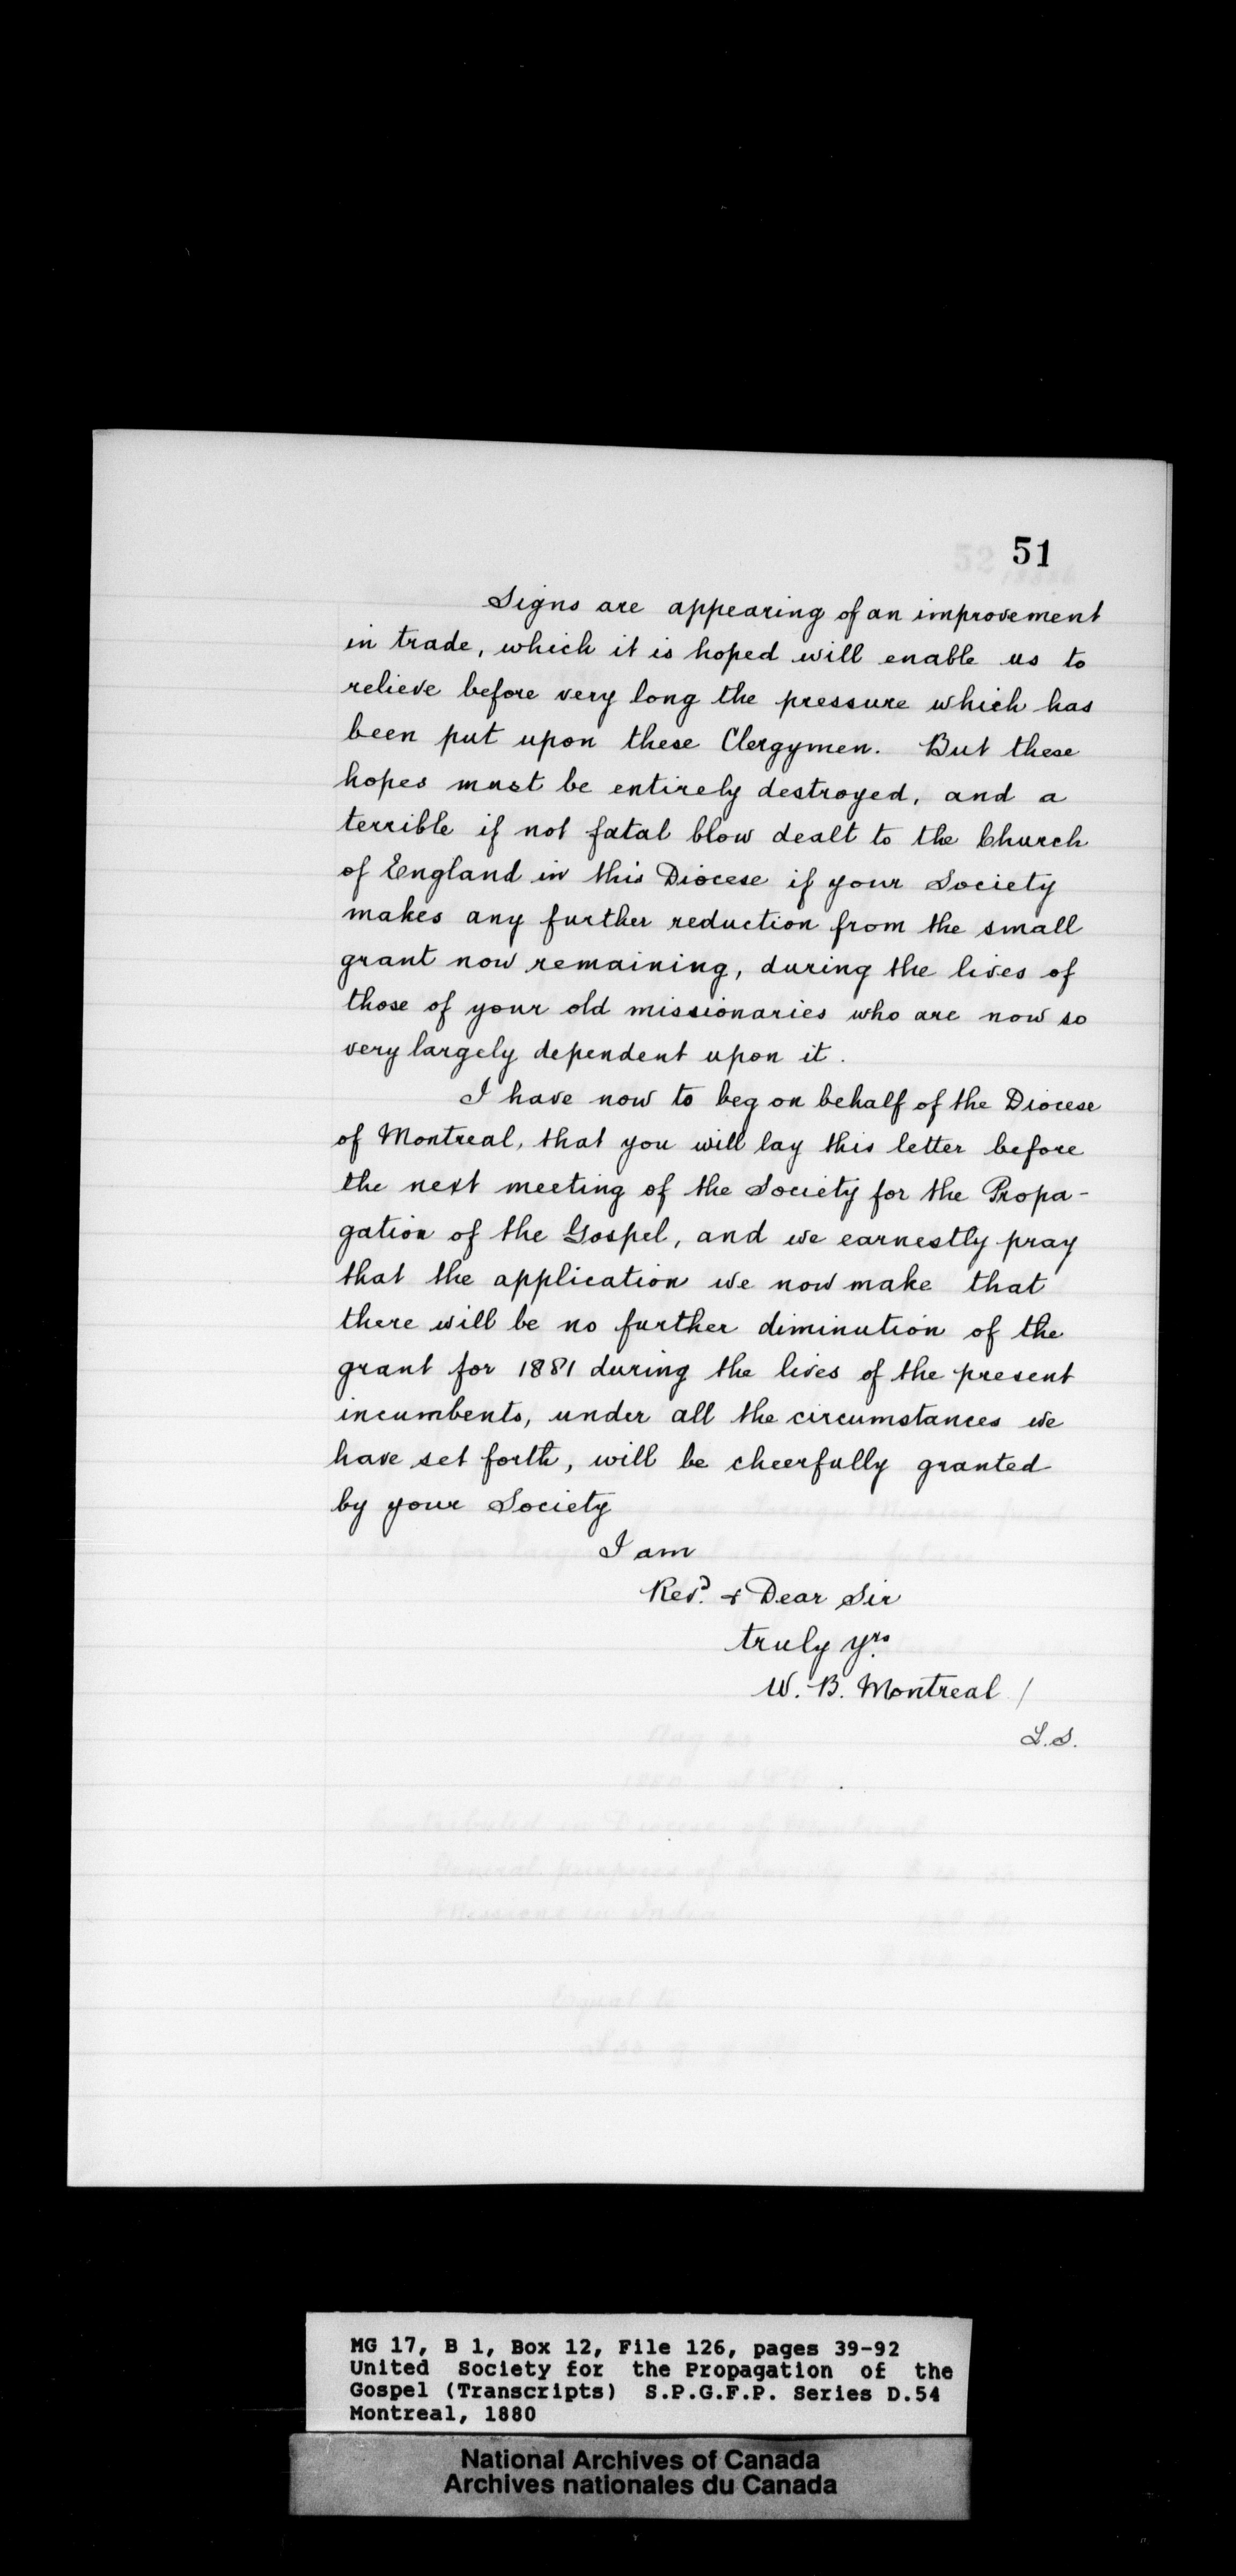 51
Signs are appearing of an improvement
in trade, which it is hoped will enable us to
relieve before very long the pressure which has
been put upon these Clergymen. But these
hopes must be entirely destroyed, and a
terrible if not fatal blow dealt to the Church
of England in this Diocese if your Society
makes any further reduction from the small
grant now remaining, during the lives of
those of your old missionaries who are now so
very largely dependent upon it.
I have now to beg on behalf of the Diocese
of Montreal, that you will lay this letter before
the next meeting of the Society for the Propa-
gation of the Gospel, and we earnestly pray
that the application we now make that
there will be no further diminution of the
grant for 1881 during the lives of the present
incumbents, under all the circumstances we
have set forth, will be cheerfully granted
by your Society
I am
Revd. & Dear Sir
truly yrs.
W. B. Montreal /
L.S.
MG 17, B 1, Box 12, File 126, pages 39-92
United Society for the Propagation of the
Gospel (Transcripts) S.P.G.F.P. Series D.54
Montreal, 1880
National Archives of Canada
Archives nationales du Canada